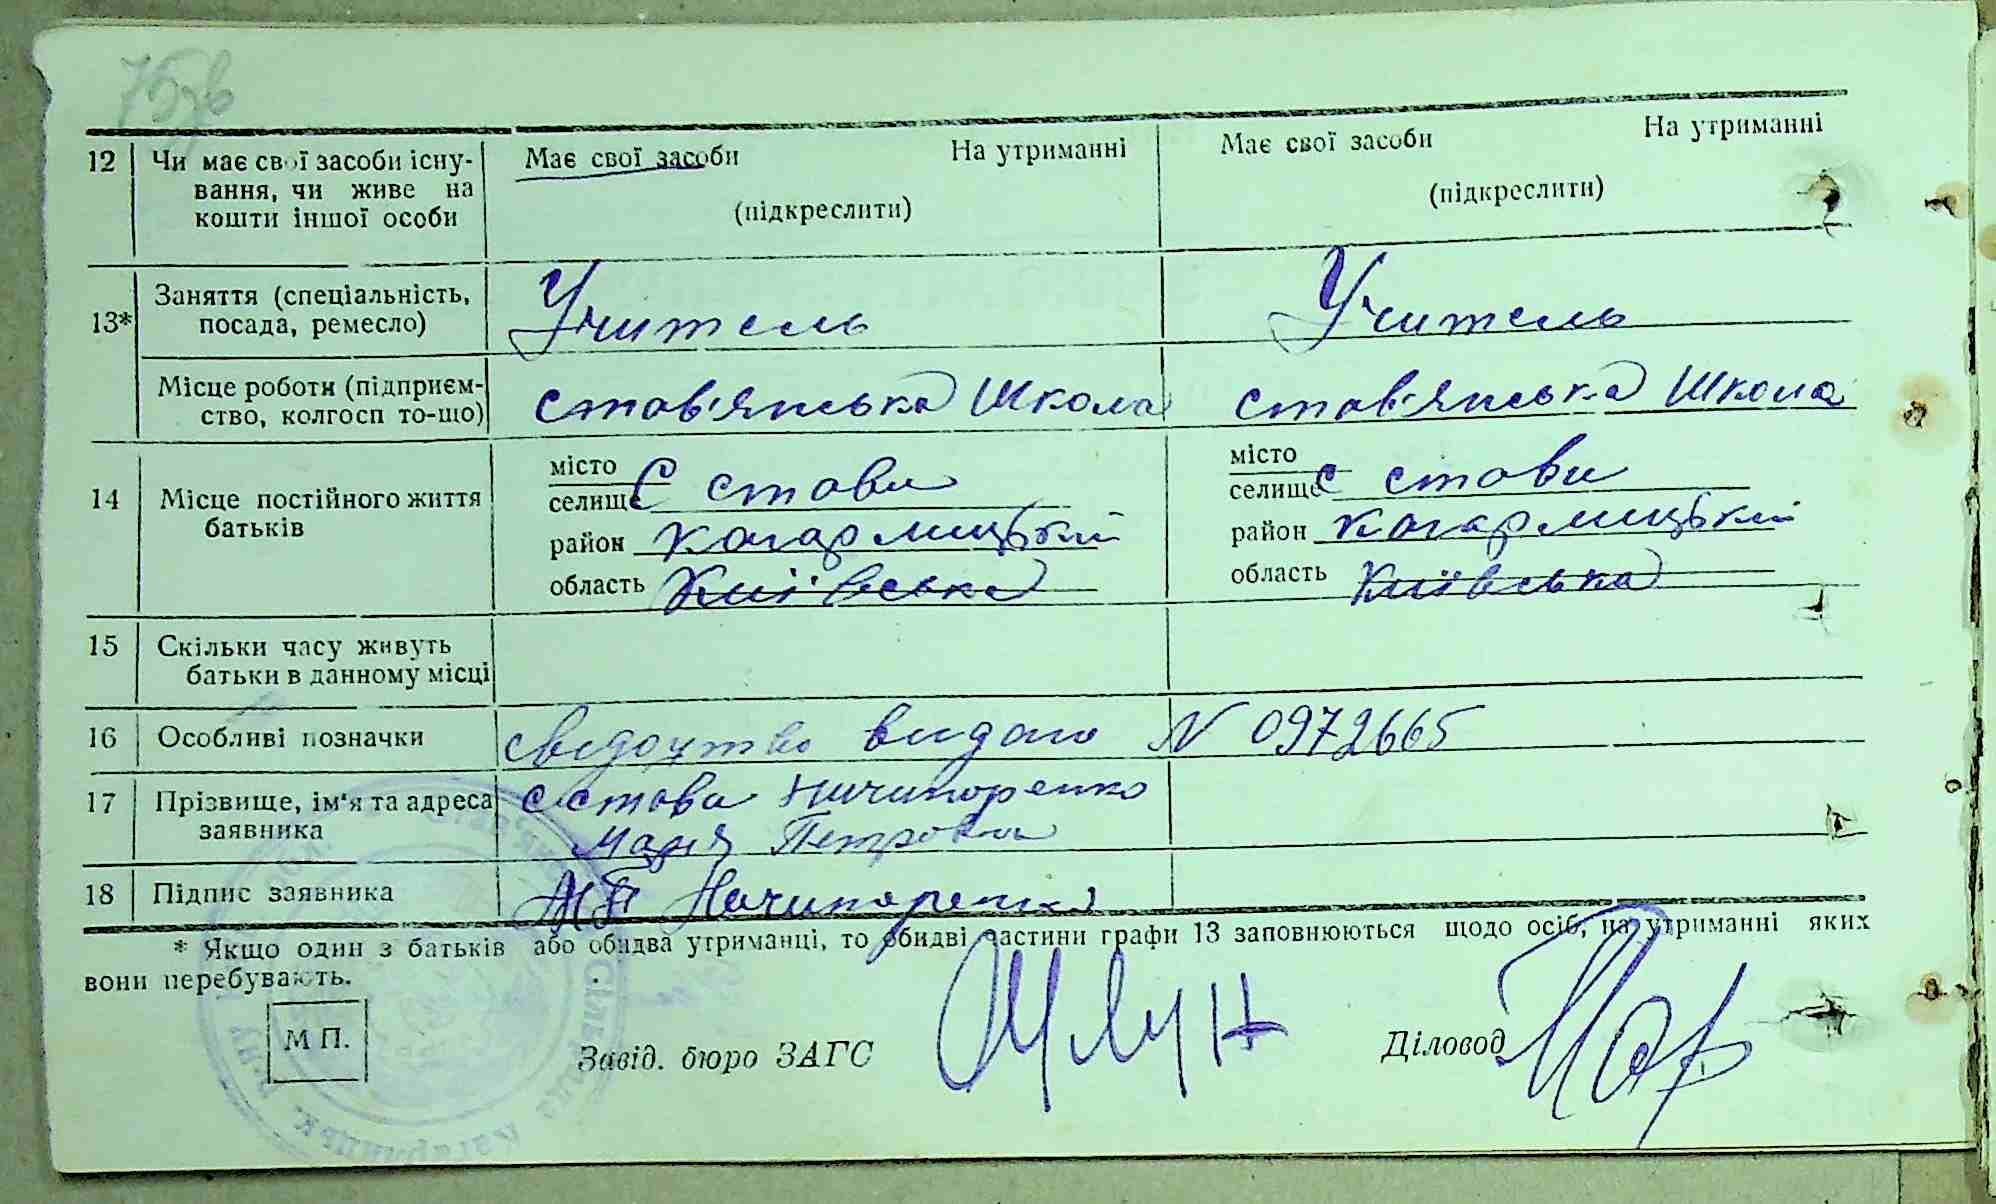 75зв
12 Чи має свої засоби існу- Має свої засоби На утриманні Має свої засоби На утриманні
вання, чи живе на
кошти іншої особи (підкреслити) (підкреслити)
13* Заняття (спеціальність, Учитель Учитель
посада, ремесло)
Місце роботи (підприєм- став'янська школа став'янська школа
ство, колгосп то-що)
14 Місце постійного життя місто місто
батьків селище С стави селище С стави
район Кагарлицький район Кагарлицький
область Київська область Київська
15 Скільки часу живуть
батьки в данному місці
16 Особливі позначки свідоцтво видано N 0972665
17 Прізвище, ім'я та адреса с става Ничипоренко
заявника Марія Петровна
18 Підпис заявника МП Ничипоренко
* Якщо один з батьків або обидва утриманці, то обидві частини графи 13 заповнюються щодо осіб, на утриманні яких
вони перебувають.
М П.
Завід. бюро ЗАГС Діловод